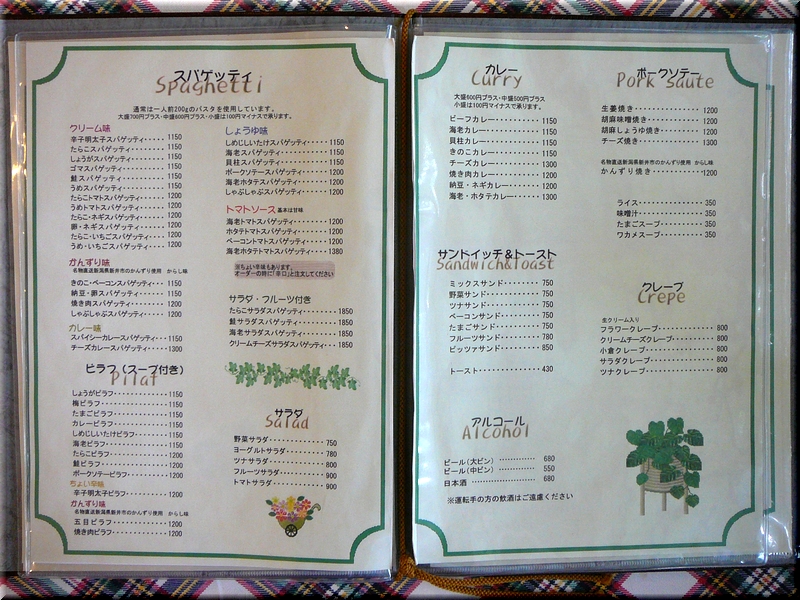 スパゲッティ
Spaghetti
通常は一人前200gのパスタを使用しています。
大盛700円プラス・中盛600円プラス・小盛は100円マイナスで承ります。
クリーム味
辛子明太子スパゲッティ・・・・1150
たらこスパゲッティ・・・・・・1150
しょうがスパゲッティ・・・・・1150
ゴマスパゲッティ・・・・・・・1150
鮭スパゲッティ・・・・・・・・1150
うめスパゲッティ・・・・・・・1150
たらこトマトスパゲッティ・・・1200
うめトマトスパゲッティ・・・・1200
たらこ・ネギスパゲッティ・・・1200
卵・ネギスパゲッティ・・・・・1200
たらこ・いちごスパゲッティ・・1200
うめ・いちごスパゲッティ・・・1200
かんずり味
名物直送新潟県新井市のかんずり使用 からし味
きのこ・ベーコンスパゲッティ・・・1150
納豆・卵スパゲッティ・・・・・・・1150
焼き肉スパゲッティ・・・・・・・・1200
しゃぶしゃぶスパゲッティ・・・・・1200
カレー味
スパイシーカレースパゲッティ・・・1150
チーズカレースパゲッティ・・・・・1300
ピラフ（スープ付き）
Pilaf
しょうがピラフ・・・・・・・1150
梅ピラフ・・・・・・・・・・1150
たまごピラフ・・・・・・・・1150
カレーピラフ・・・・・・・・1150
しめじしいたけピラフ・・・・1150
海老ピラフ・・・・・・・・・1150
たらこピラフ・・・・・・・・1200
鮭ピラフ・・・・・・・・・・1200
ポークソテーピラフ・・・・・1200
ちょい辛味
辛子明太子ピラフ・・・・・・1200
かんずり味
名物直送新潟県新井市のかんずり使用 からし味
五目ピラフ・・・・・・・・・1200
焼き肉ピラフ・・・・・・・・1200
しょうゆ味
しめじしいたけスパゲッティ・・・・1150
海老スパゲッティ・・・・・・・・・1150
貝柱スパゲッティ・・・・・・・・・1150
ポークソテースパゲッティ・・・・・1200
海老ホタテスパゲッティ・・・・・・1200
しゃぶしゃぶスパゲッティ・・・・・1200
トマトソース 基本は甘味
海老トマトスパゲッティ・・・・・・1200
ホタテトマトスパゲッティ・・・・・1200
ベーコントマトスパゲッティ・・・・1200
海老ホタテトマトスパゲッティ・・・1380
※ちょい辛味もあります。
オーダーの時に「辛口」と注文してください
サラダ・フルーツ付き
たらこサラダスパゲッティ・・・・・1850
鮭サラダスパゲッティ・・・・・・・1850
海老サラダスパゲッティ・・・・・・1850
クリームチーズサラダスパゲッティ・・1850
サラダ
Salad
野菜サラダ・・・・・・・・・750
ヨーグルトサラダ・・・・・・780
ツナサラダ・・・・・・・・・800
フルーツサラダ・・・・・・・900
トマトサラダ・・・・・・・・900
カレー
Curry
大盛600円プラス・中盛500円プラス
小盛は100円マイナスで承ります。
ビーフカレー・・・・・・・・1150
海老カレー・・・・・・・・・1150
貝柱カレー・・・・・・・・・1150
きのこカレー・・・・・・・・1150
チーズカレー・・・・・・・・1300
焼き肉カレー・・・・・・・・1200
納豆・ネギカレー・・・・・・1200
海老・ホタテカレー・・・・・1300
サンドイッチ＆トースト
Sandwich&Toast
ミックスサンド・・・・・・750
野菜サンド・・・・・・・・750
ツナサンド・・・・・・・・750
ベーコンサンド・・・・・・750
たまごサンド・・・・・・・750
フルーツサンド・・・・・・780
ピッツァサンド・・・・・・850
トースト・・・・・・・・・430
アルコール
Alcohol
ビール（大ビン）・・・・・・680
ビール（中ビン）・・・・・・550
日本酒・・・・・・・・・・・680
※運転手の方の飲酒はご遠慮ください
ポークソテー
Pork Saute
生姜焼き・・・・・・・・・・1200
胡麻味噌焼き・・・・・・・・1200
胡麻しょうゆ焼き・・・・・・1200
チーズ焼き・・・・・・・・・1300
名物直送新潟県新井市のかんずり使用 からし味
かんずり焼き・・・・・・・・1200
ライス・・・・・・・・・・・350
味噌汁・・・・・・・・・・・350
たまごスープ・・・・・・・・350
ワカメスープ・・・・・・・・350
クレープ
Crepe
生クリーム入り
フラワークレープ・・・・・・・800
クリームチーズクレープ・・・・800
小倉クレープ・・・・・・・・・800
サラダクレープ・・・・・・・・800
ツナクレープ・・・・・・・・・800